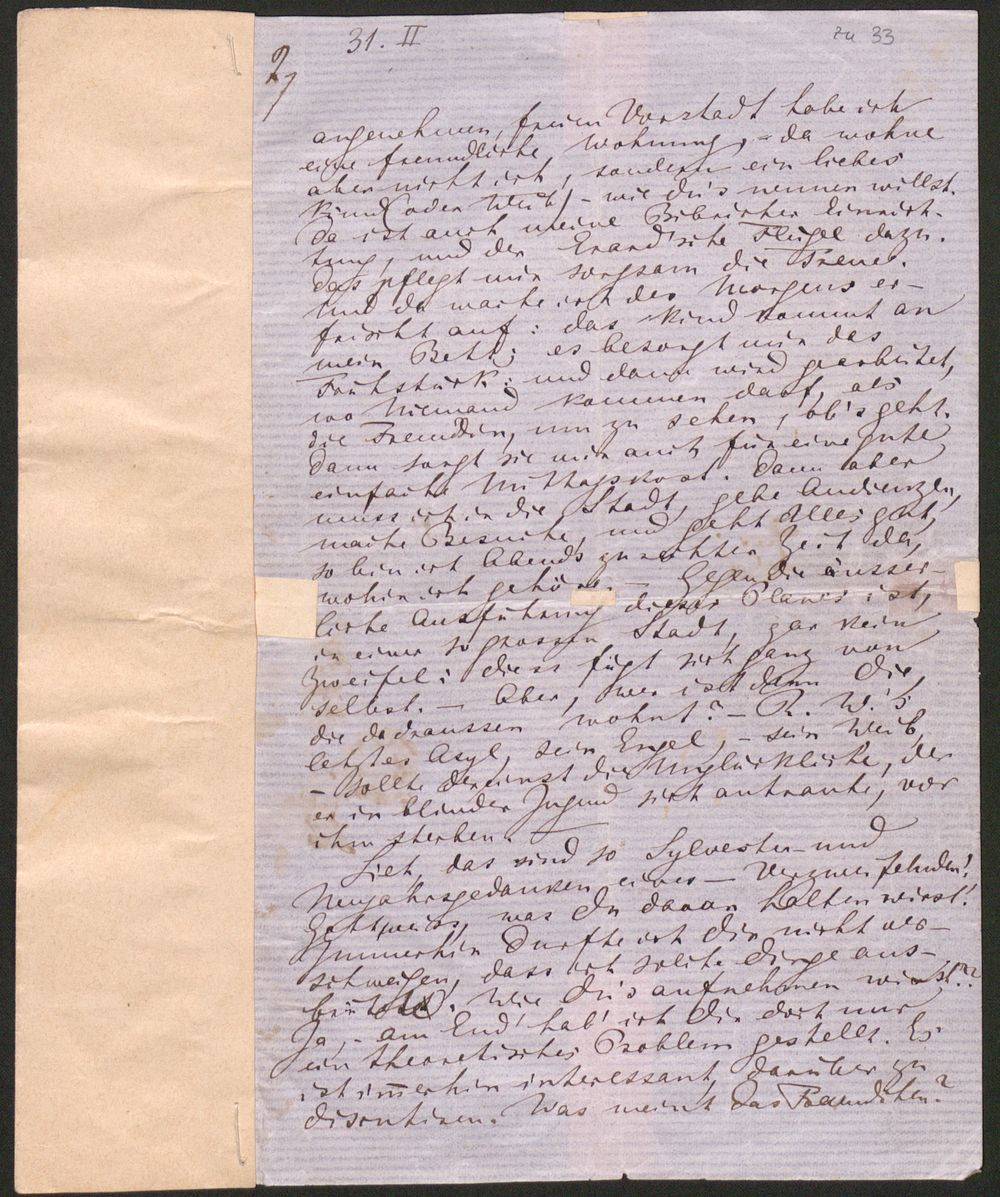 31. II
zu 33
2)
angenehmen, freien Vorstadt habe ich
eine freundliche Wohnung, – da wohne
aber nicht ich, sondern ein liebes
Kind (oder Weib) – wie Du's nennen willst.
Da ist auch meine Bibricher Einrich-
tung, und der Erard'sche Flügel dazu.
Das pflegt mir sorgsam die Treue.
Und da wache ich des Morgens er-
frischt auf: das Kind kommt an
mein Bett; es besorgt mir das
Frühstück: und dann wird gearbeitet,
wo Niemand kommen darf, als
die Freundin, um zu sehen, ob's geht.
Dann sorgt sie mir auch für eine gute
einfache Mittagskost. Dann aber
muss ich in die Stadt, gebe Audienzen,
mache Besuche, und geht Alles gut,
so bin ich Abends zu rechter Zeit da,
wohin ich gehöre. – Gegen die äusser-
liche Ausführung dieses Planes ist,
in einer so grossen Stadt, gar kein
Zweifel: diess fügt sich ganz von
selbst. – Aber, wer ist denn Die,
die da draussen wohnt? – R. W.'s
letztes Asyl, sein Engel, – sein Weib,
– sollte dereinst die Unglückliche, der
er in blinder Jugend sich antraute, vor
ihm sterben. –
Sieh, das sind so Sylvester- und
Neujahrsgedanken eines – Verzweifelnden!
Gott weiss, was Du davon halten wirst!
Immerhin durfte ich Dir nicht ver-
schweigen, dass ich solche Dinge aus-
brüte. Wie Du's aufnehmen wirst??
Ja, – am End' hab' ich Dir doch nur
ein theoretisches Problem gestellt. Es
ist immerhin interessant, darüber zu
discutiren. Was meint das Freundchen?